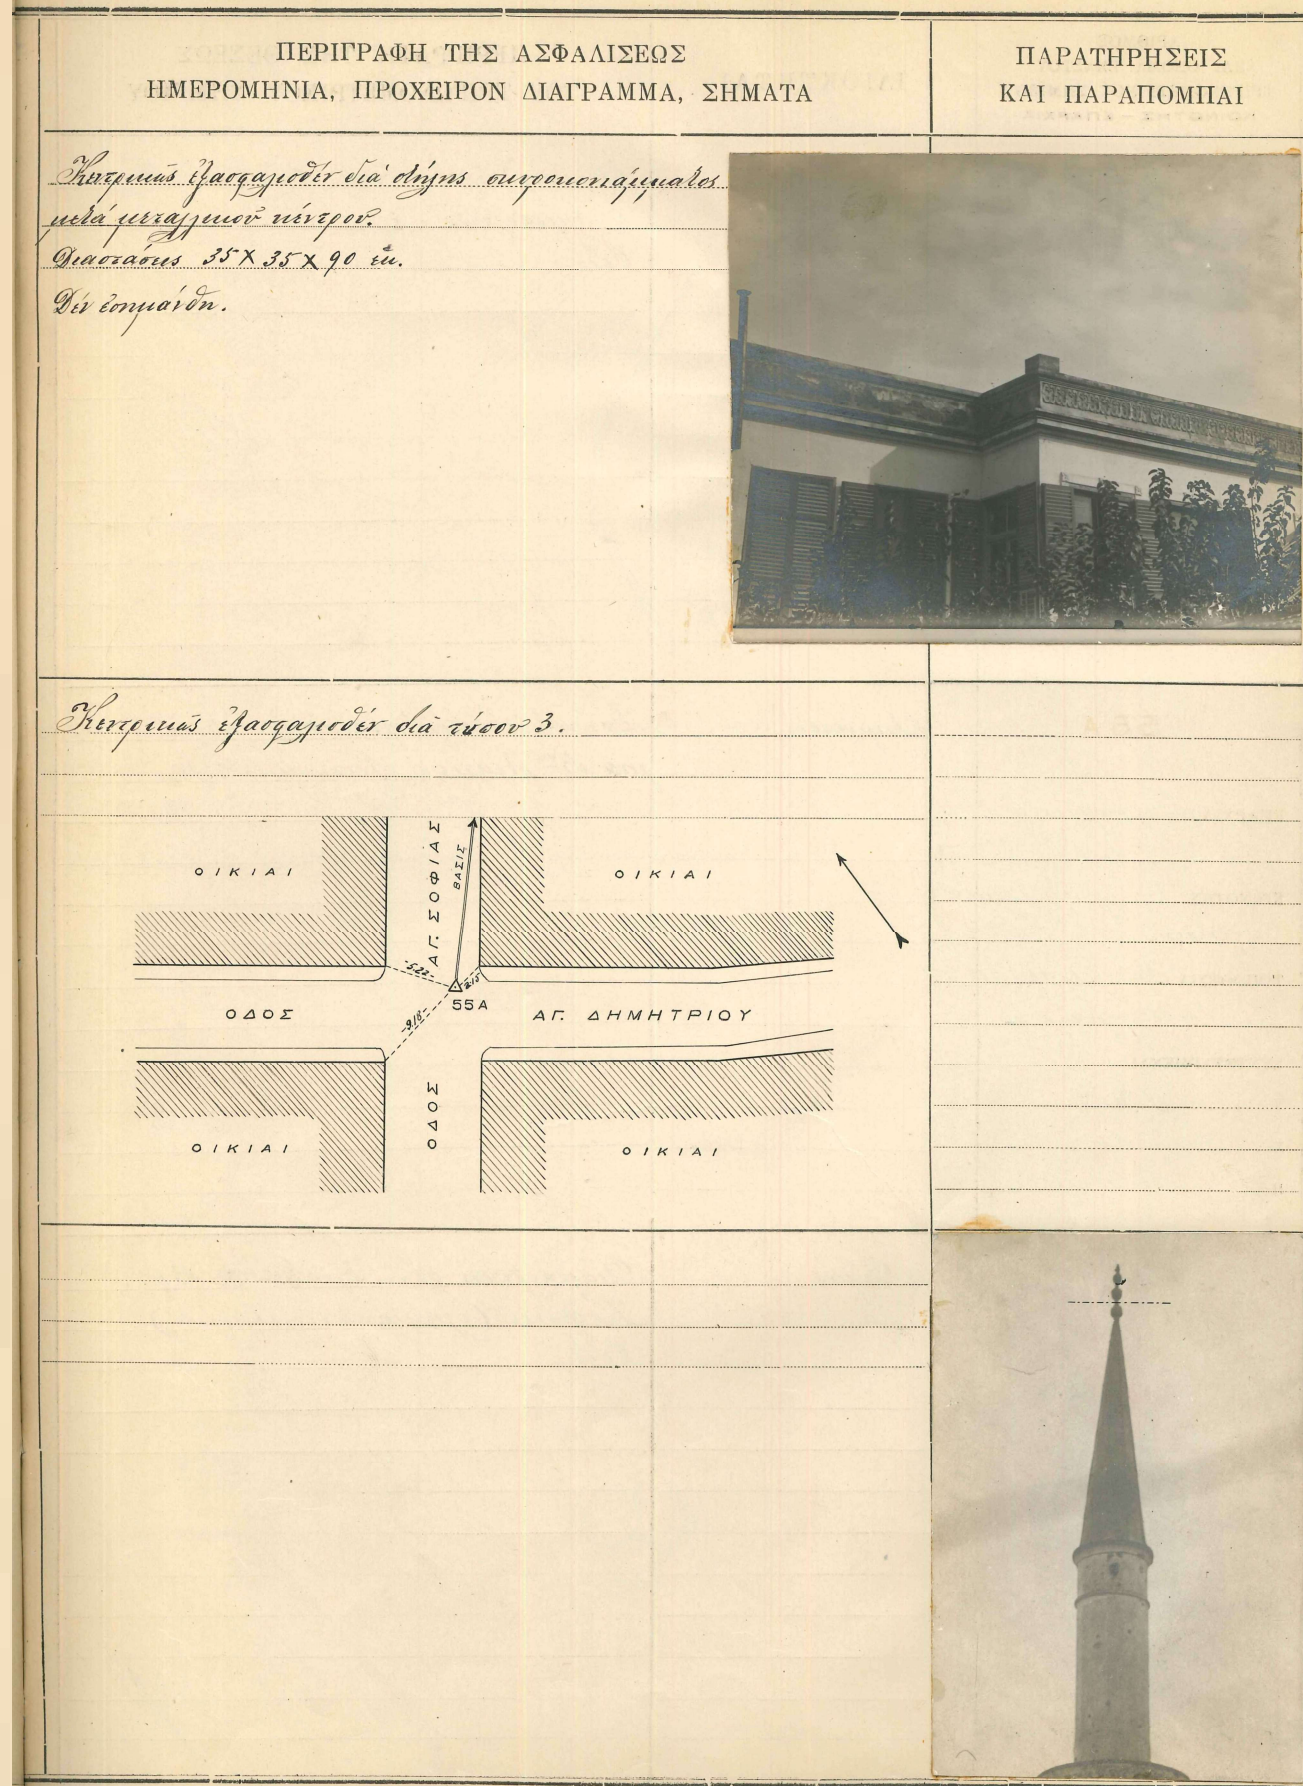 ΠΕΡΙΓΡΑΦΗ ΤΗΣ ΑΣΦΑΛΙΣΕΩΣ
ΗΜΕΡΟΜΗΝΙΑ, ΠΡΟΧΕΙΡΟΝ ΔΙΑΓΡΑΜΜΑ, ΣΗΜΑΤΑ
ΠΑΡΑΤΗΡΗΣΕΙΣ
ΚΑΙ ΠΑΡΑΠΟΜΠΑΙ
Κεντρικῶς ἐξασφαλισθέν διά στήλης σκυροκονιάματος
μετά μεταλλικοῦ κέντρου.
Διαστάσεις 35 X 35 X 90 ἑκ.
Δέν ἐσημάνθη.
Κεντρικῶς ἐξασφαλισθέν διά τύπου 3.
ΟΙΚΙΑΙ
ΑΓ. ΣΟΦΙΑΣ
ΒΑΣΙΣ
ΟΙΚΙΑΙ
5.22
2.15
55Α
ΟΔΟΣ
9.18
ΑΓ. ΔΗΜΗΤΡΙΟΥ
ΟΔΟΣ
ΟΙΚΙΑΙ
ΟΙΚΙΑΙ